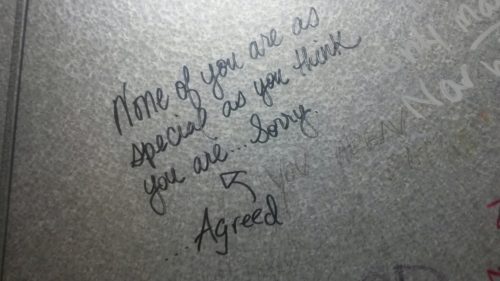 None of you are as
special as you think
you are... Sorry.
...Agreed
YOU MEAN
Nor